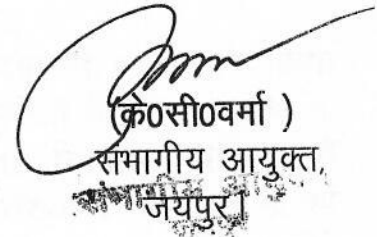 (के0सी0वर्मा )
संभागीय आयुक्त,
जयपुर।